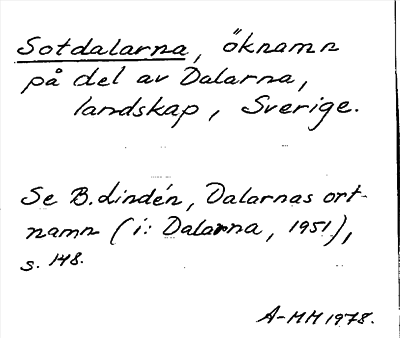 Sotdalarna, öknamn
på del av Dalarna,
landskap, Sverige.
Se B. Lindén, Dalarnas ort-
namn (i: Dalarna, 1951),
s. 148.
A-MM 1978.